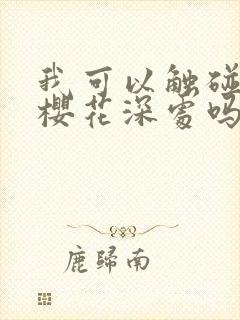 我可以触碰
樱花深处吗
鹿歸南